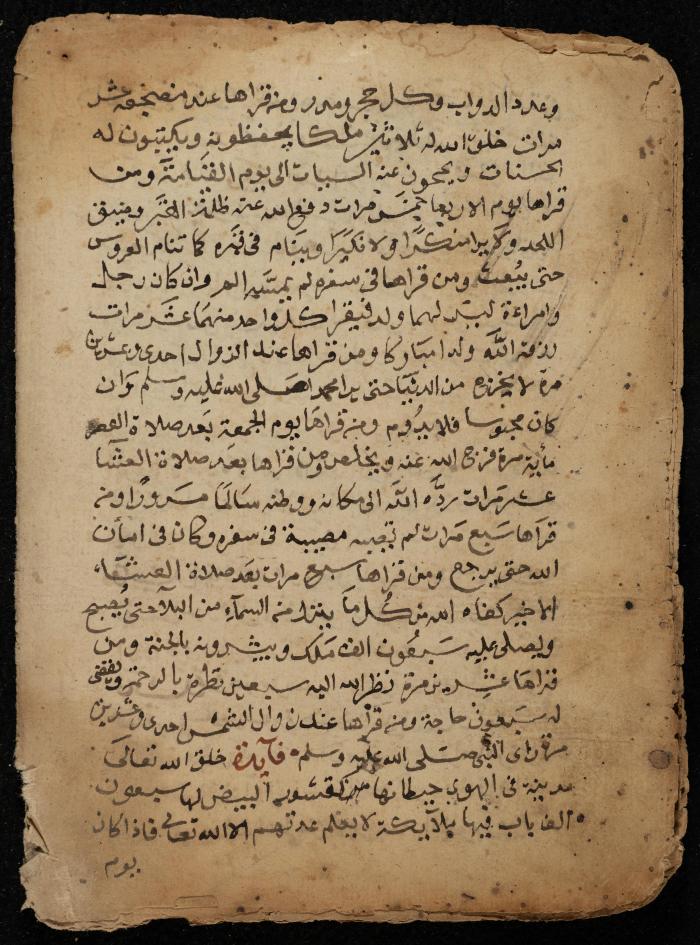 وعدد الدواب وكل حجر ومدر ومن قراها عند مضجعه عشر
مرات خلق الله له ثلاثين ملكا يحفظونه ويكتبون له
الحسنات ويمحون عنه السيات الى يوم القيامة ومن
قراها يوم الاربعا خمس مرات دفع الله عنه ظلمة القبر وضيق
اللحد ولا يرا منكرا ولا نكيرا وينام في قبره كما تنام العروس
حتى يبعث ومن قراها في سفره لم يمسه الم وان كان رجل
وامراءة ليس لهما ولد فيقرا كل واحد منهما عشر مرات
رزقه الله ولدا مباركا ومن قراها عند الزوال احدى وعشرين
مرة لا يخرج من الدنيا حتى يرا محمدا صلى الله عليه وسلم وان
كان محبوسا فلا يدوم ومن قراها يوم الجمعة بعد صلاة العصر
مأية مرة فرج الله عنه ويخلص ومن قراها بعد صلاة العشا
عشر مرات رده الله الى مكانه ووطنه سالما مسرورا ومن
قراها سبع مرات لم تصبه مصيبة في سفره وكان في امان
الله حتى يرجع ومن قراها سبع مرات بعد صلاة العشاء
الاخير كفاه الله من كل ما ينزل من السماء من البلا حتى يصبح
ويصلى عليه سبعون الف ملك ويبشرونه بالجنة ومن
قراها عشرين مرة نظر الله اليه سبعين نظرة بالرحمة ويقضى
له سبعون حاجة ومن قراها عند زوال الشمس احدى وعشرين
مرة راى النبي صلى الله عليه وسلم فآيدة خلق الله تعالى
مدينة في الهوى حيطانها من قشور البيض لها سبعون
الف باب فيها ملآيكة لا يعلم عدتهم الا الله تعالى فاذا كان
يوم